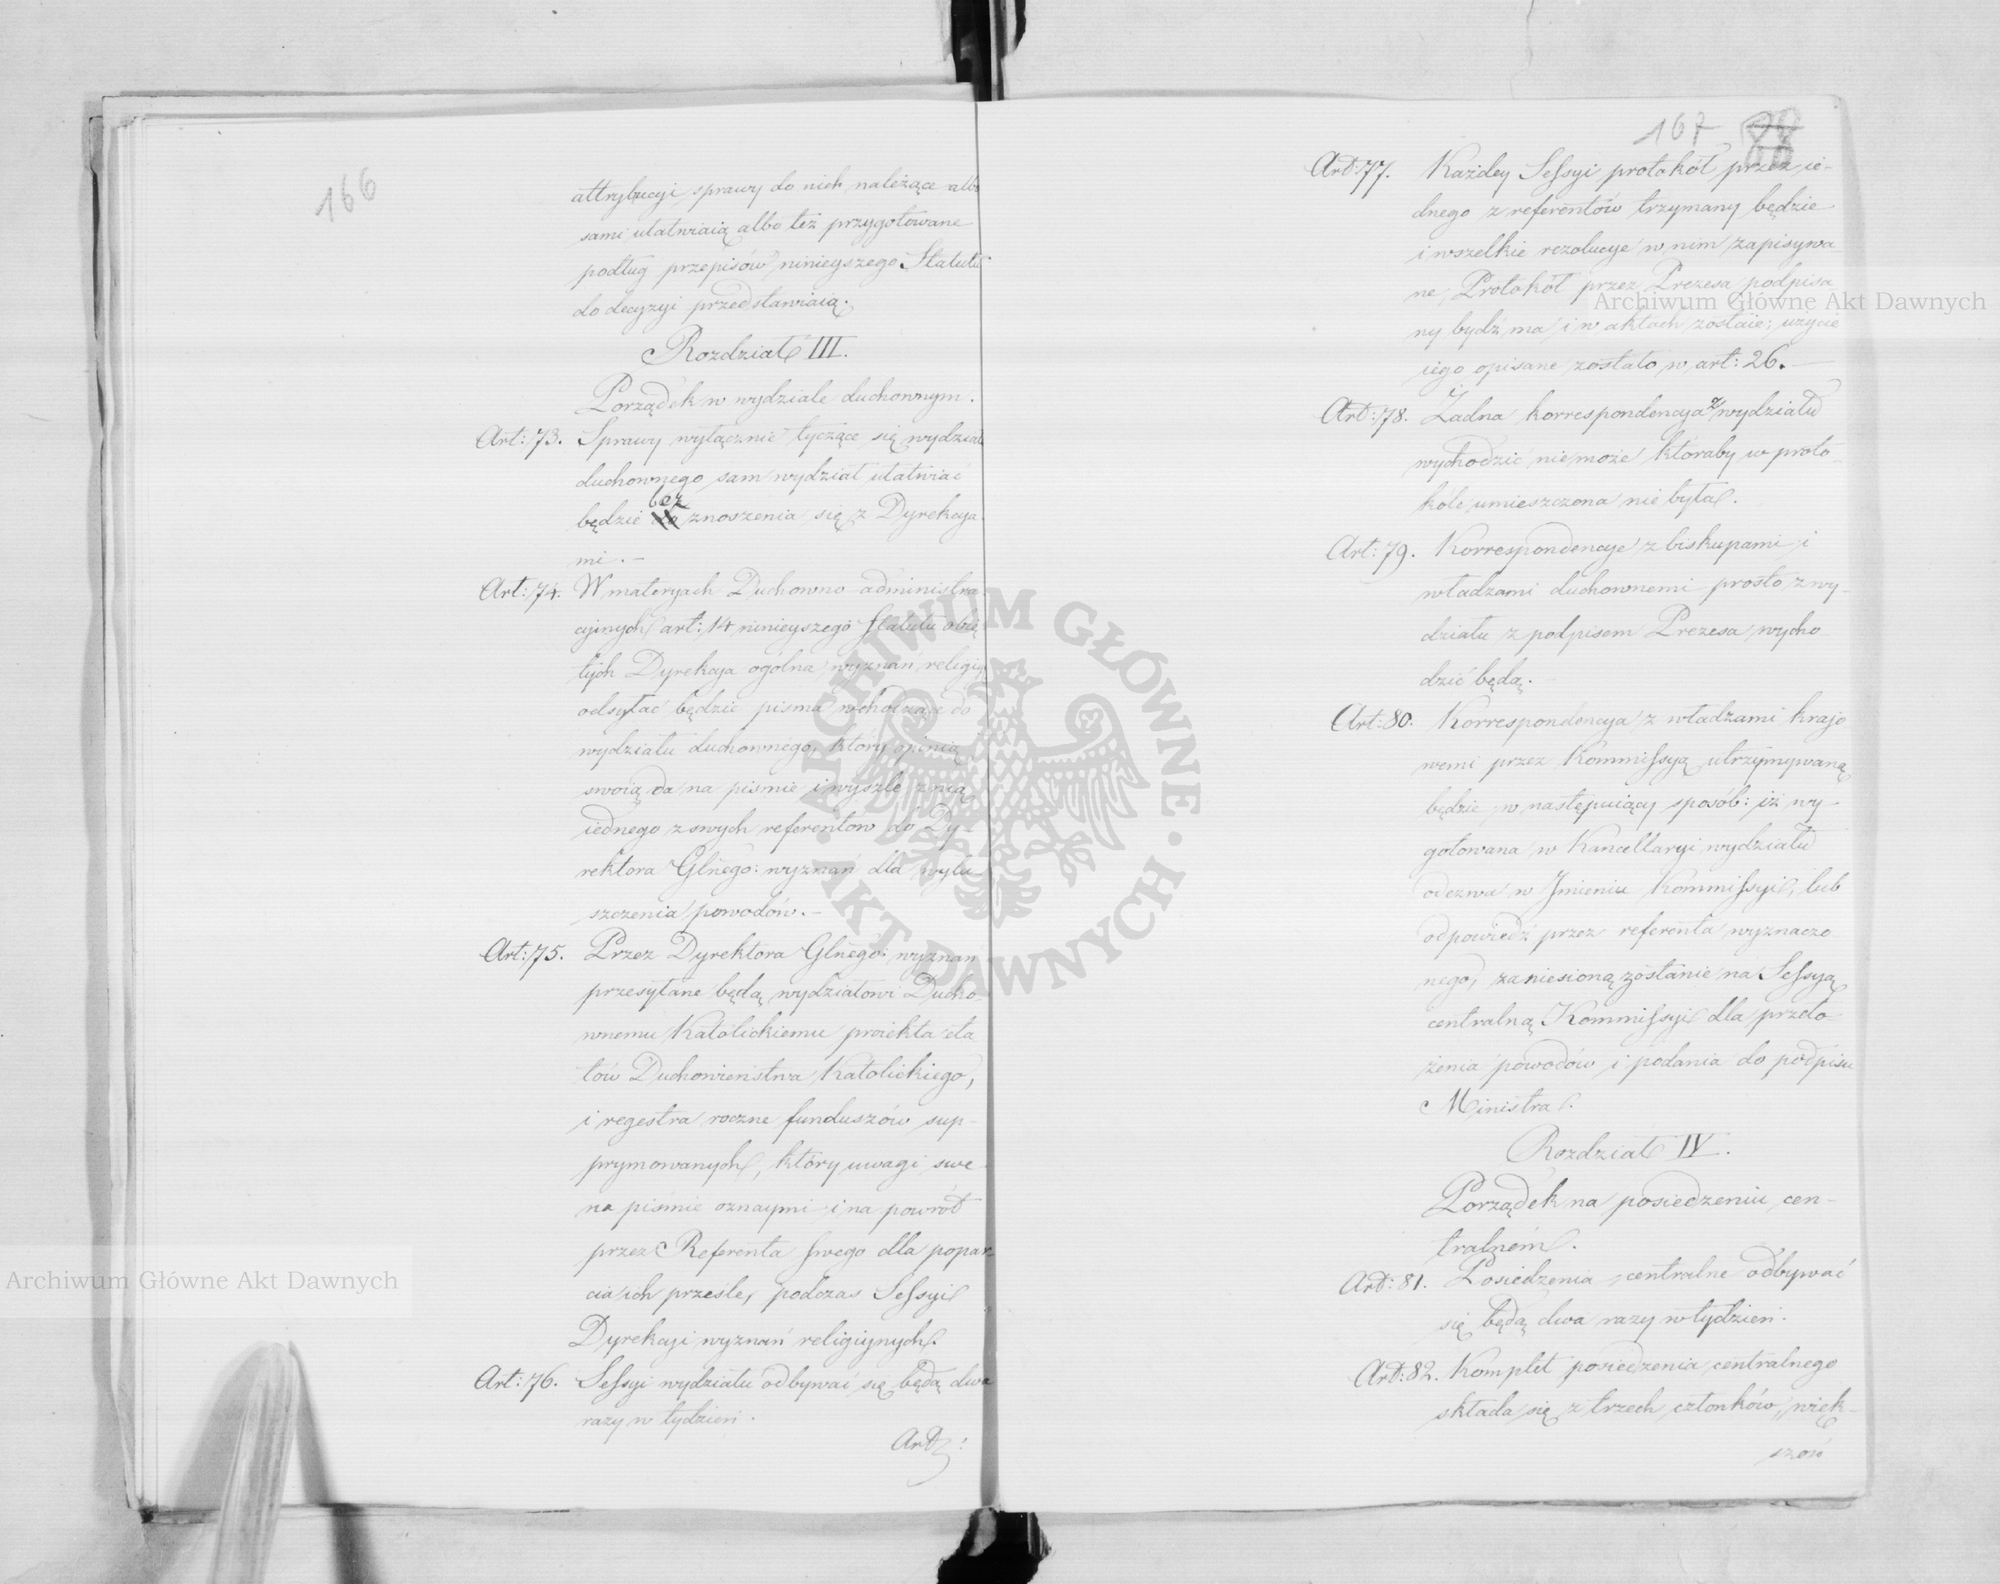 166
attrybucyi sprawy do nich należące albo
sami ułatwiaią albo też przygotowane
podług przepisów ninieyszego Statutu
do decyzyi przedstawiaią.
Rozdział III.
Porządek w wydziale duchownym.
Art: 73. Sprawy wyłącznie tyczące się wydziału
duchownego sam wydział ułatwiać
bez
będzie znoszenia się z Dyrekcya
mi. —
Art: 74. W materyach Duchowno-administra
cyjnych art: 14 ninieyszego Statutu obię
tych Dyrekcya ogolna wyznań religiy
odsyłać będzie pisma wchodzące do
wydziału duchownego, który opinią
swoią da na pismie i wyszle z nią
iednego z swych referentów do Dy-
rektora Glnego: wyznań dla wyłu
szczenia powodów. —
Art: 75. Przez Dyrektora Glnego: wyznań
przesyłane będą wydziałowi Ducho-
wnemu Katolickiemu proiekta eta
tów Duchowieństwa Katolickiego,
i regestra roczne funduszów sup-
prymowanych, który uwagi swe
na piśmie oznaymi i na powrót
przez Referenta swego dla popar-
cia ich prześle, podczas Sessyi
Dyrekcyi wyznań religiynych.
Art: 76. Sessyi wydziału odbywać się będą dwa
razy w tydzień.
Art:
167
Art: 77. Każdey Sessyi protokół przez ie-
dnego z referentów trzymany będzie
i wszelkie rezolucye w nim zapisywa
ne, Protokół przez Prezesa podpisa
ny bydz ma i w aktach zostaie; użycie
iego opisane zostało w art: 26. —
Art: 78. Żadna korrespondencya z wydziału
wychodzić nie może któraby w proto-
kóle umieszczona nie była.
Art: 79. Korrespondencye z biskupami i
władzami duchownemi prosto z wy-
działu z podpisem Prezesa wycho
dzić będą. —
Art: 80. Korrespondencya z władzami krajo
wemi przez Kommissyą utrzymywaną
będzie w następuiący sposób: iż wy-
gotowana w Kancellaryi wydziału
odezwa w Jmieniu Kommissyi, lub
odpowiedź przez referenta wyznaczo
nego, zaniesioną zostanie na Sessyą
centralną Kommissyi dla przeło-
żenia powodów i podania do podpisu
Ministra.
Rozdział IV.
Porządek na posiedzeniu cen-
tralném.
Art: 81. Posiedzenia centralne odbywać
się będą dwa razy w tydzień.
Art: 82. Komplet posiedzenia centralnego
składa się z trzech członków, więk-
szość
Archiwum Główne Akt Dawnych
Archiwum Główne Akt Dawnych
ARCHIWUM GŁÓWNE · AKT DAWNYCH ·